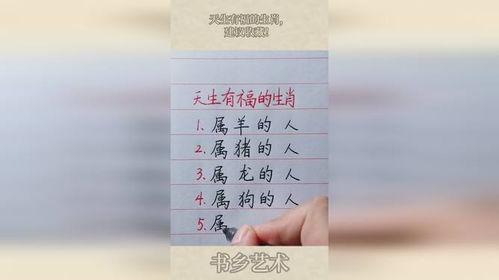 天生有福的生肖,
建议收藏!
天生有福的生肖
1.属羊的人
2.属猪的人
3.属龙的人
4.属狗的人
5.属
书乡艺术